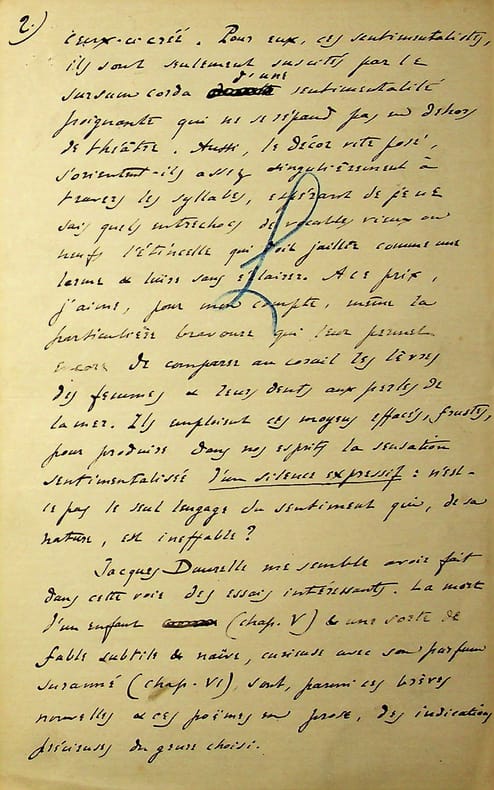 2.)
ceux-ci créé. Pour eux, ces sentimentalistes,
ils sont seulement suscités par le
d'une
sursum corda sentimentalité
poignante qui ne se répand pas en dehors
de théâtre. Aussi, le décor vite posé,
s'orientent-ils assez singulièrement à
travers les syllabes, espérant de je ne
sais quels entrechocs de vocables vieux ou
neufs l'étincelle qui doit jaillir comme une
larme & luire sans éclairer. A ce prix,
j'aime, pour mon compte, même la
particulière bravoure qui leur permet
encore de comparer au corail les lèvres
des femmes & leurs dents aux perles de
la mer. Ils emploient ces moyens effacés, frustes,
pour produire dans nos esprits la sensation
sentimentalisée d'un silence expressif : n'est-
ce pas le seul langage du sentiment qui, de sa
nature, est ineffable ?
Jacques Daurelle me semble avoir fait
dans cette voie des essais intéressants. La mort
d'un enfant (chap. V) & une sorte de
fable subtile & naïve, curieuse avec son parfum
suranné (chap. VI) sont, parmi ces brèves
nouvelles & ces poèmes en prose, des indications
précieuses du genre choisi.